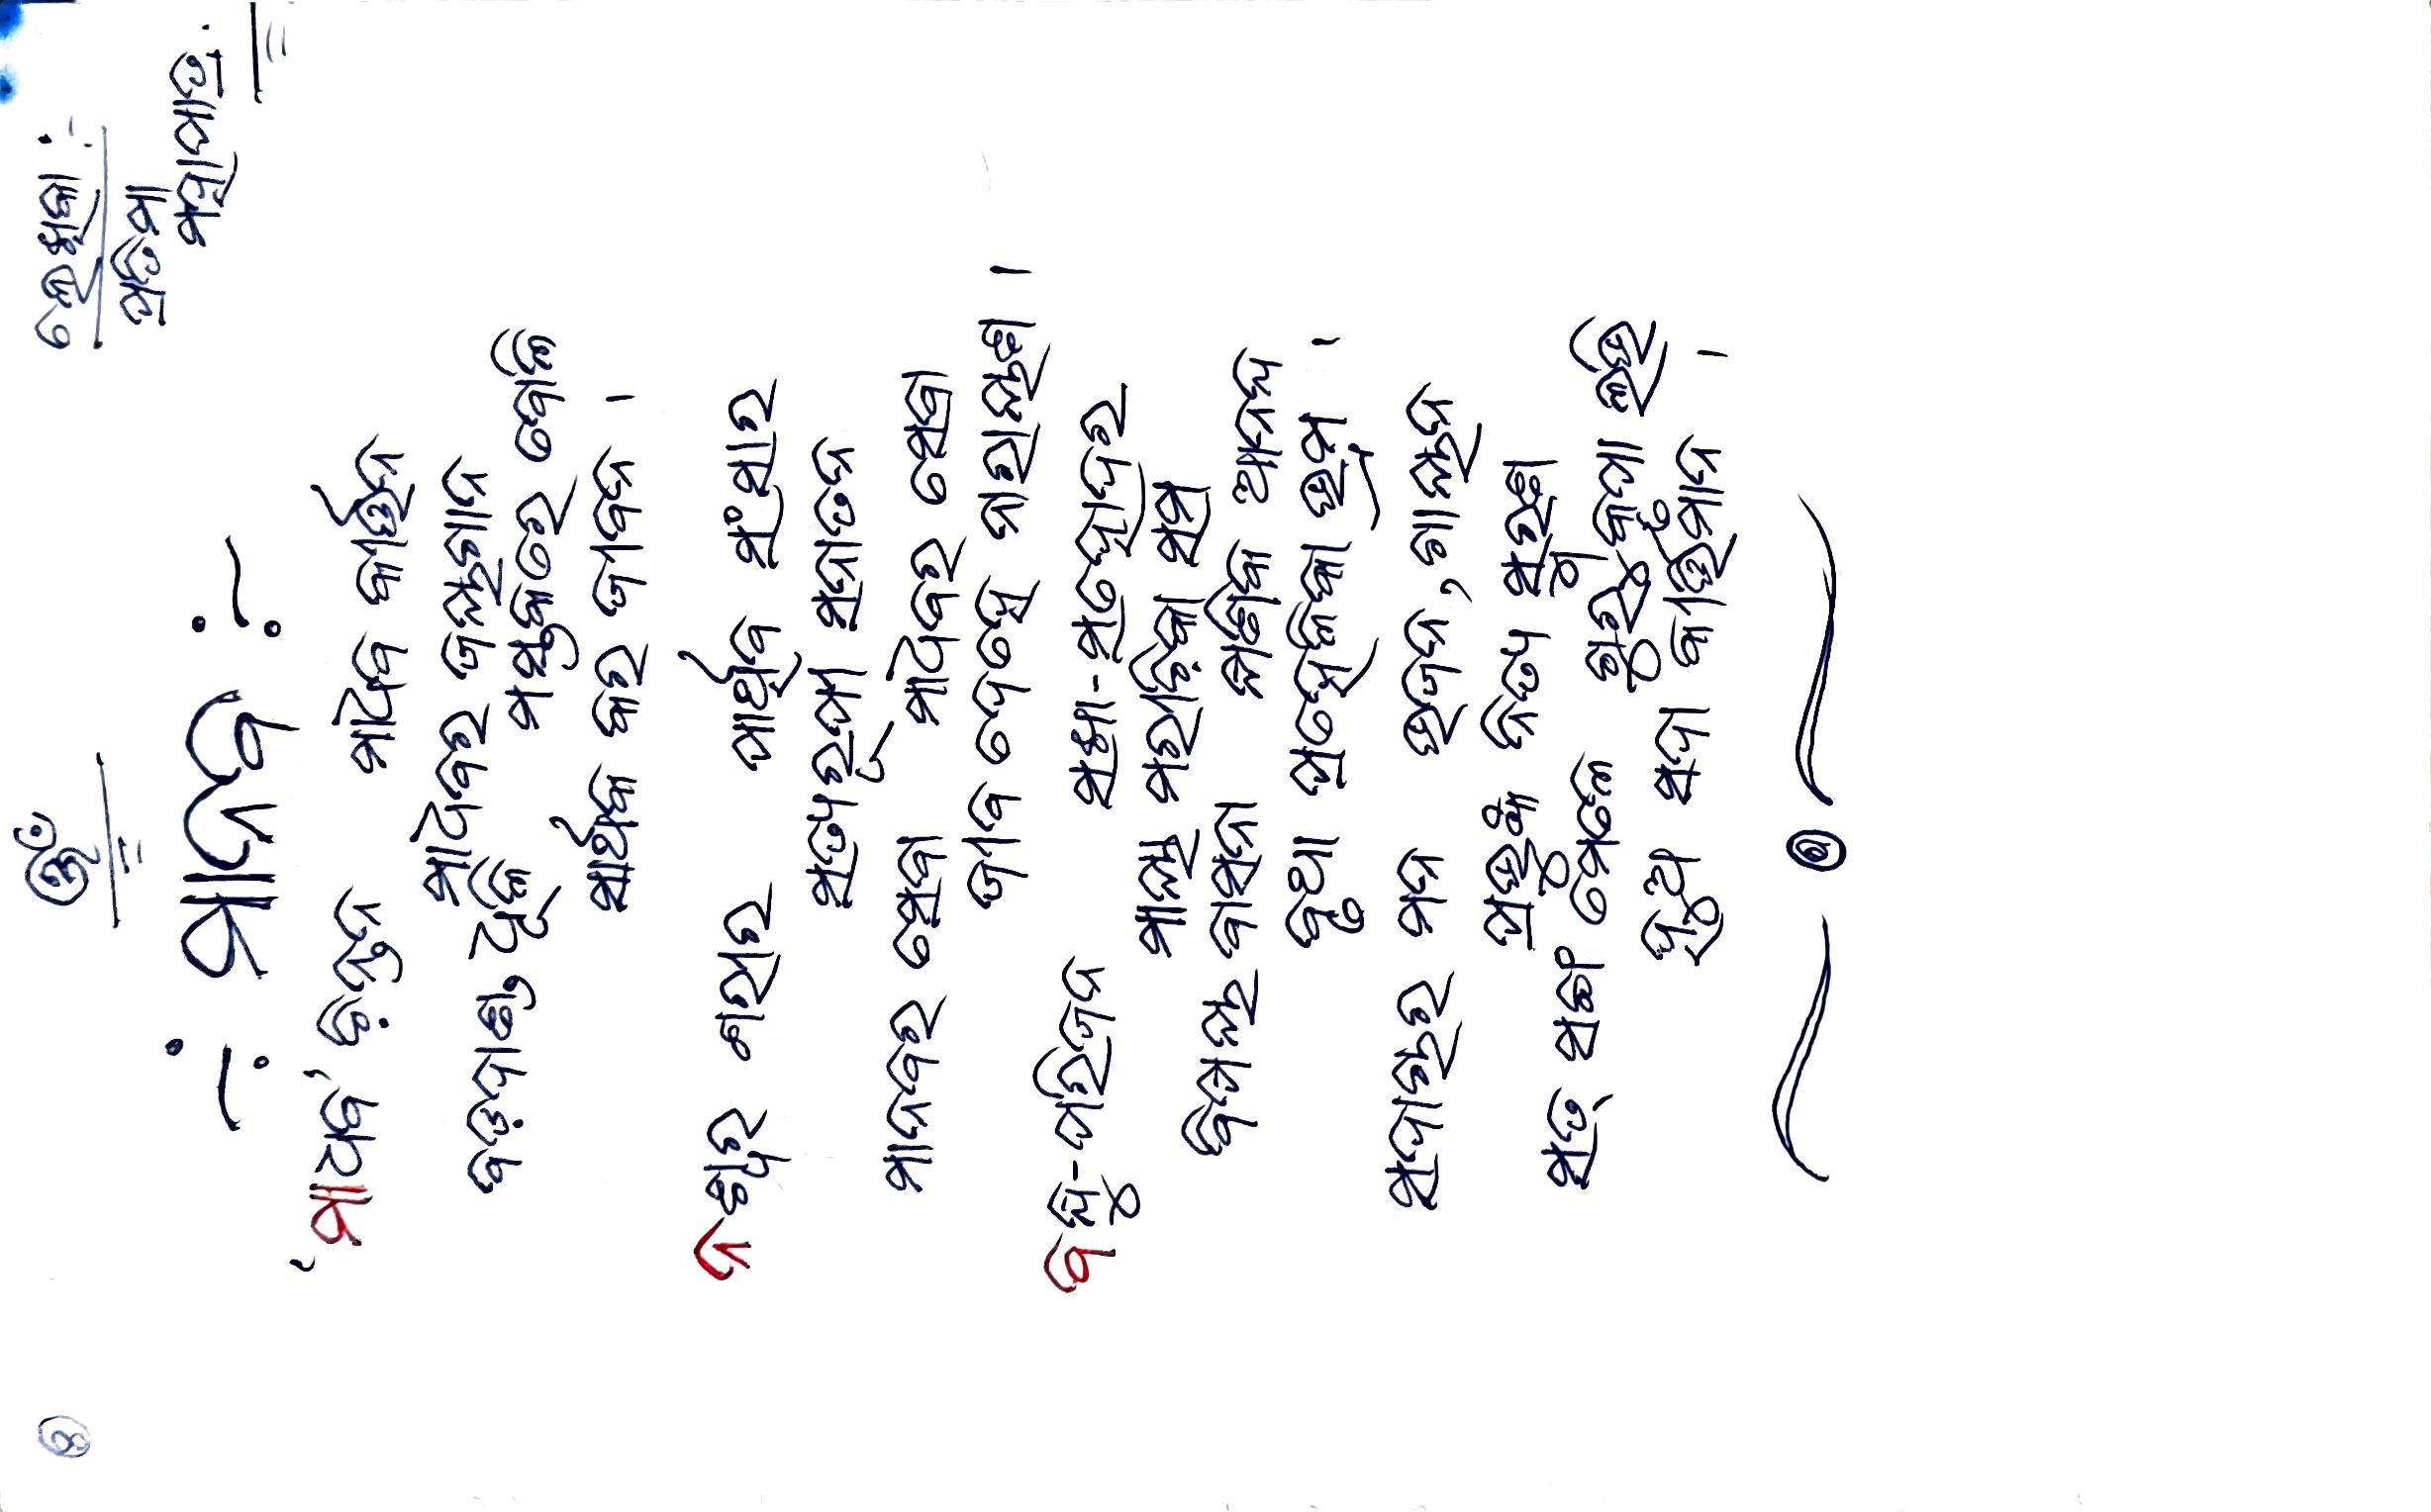 ୪
ଓଁ
ଲେଖିକା :-
ପ୍ରତିମା
ମହାପାତ୍ର.
-: ମାନବ :-
‘ମାଧବ’ ଚିନ୍ତନ ମାଧବ କୀର୍ତ୍ତନ
ମାଧବର ଜୟଗାନ
ବଡ଼ଦାଣ୍ଡ ଧୂଳି ମସ୍ତକରେ ବୋଳି
ସାର୍ଥକ କର ଜୀବନ ।
ନଶ୍ୱର ଶରୀର ପାର୍ଥିବ ସଂସାର
ସତ୍ୟରୂପୀ ସନାତନ
ମାନବର ସେବା ମାଧବର ସେବା
ଜୀବ ଦେହେ ନାରାୟଣ ।
ବନ୍ଧୁ-ପରିଜନ ସଖା-ସହୋଦର
ମାୟା ମରୀଚିକା ସମ
ବିଷୟ ବାସନା କ୍ଷଣିକ ଆନନ୍ଦ
ବୃଥା ପ୍ରହେଳିକା ଭ୍ରମ ।
ସଦାଚାର ମନ ଭଜନ, ଗାୟନ
ପ୍ରଭୁଙ୍କ ନିତ୍ୟ ସ୍ମରଣ
ସତ୍ ସଙ୍ଗ ମେଳେ ଗୁରୁକୃପା ଲଭି
ହୁଅ ସଦା କୀର୍ତ୍ତିମାନ ।